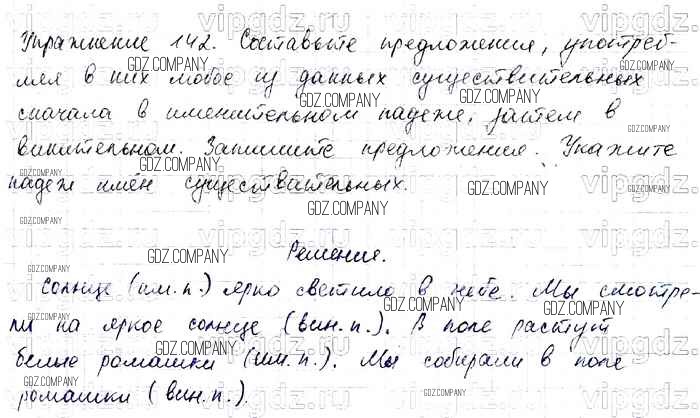 Упражнение 142. Составьте предложения, употреб-
ляя в них любое из данных существительных
сначала в именительном падеже, затем в
винительном. Запишите предложения. Укажите
падеж имён существительных.
Решение.
Солнце (им.п.) ярко светило в небе. Мы смотре-
ли на яркое солнце (вин.п.). В поле растут
белые ромашки (им.п.). Мы собирали в поле
ромашки (вин.п.).